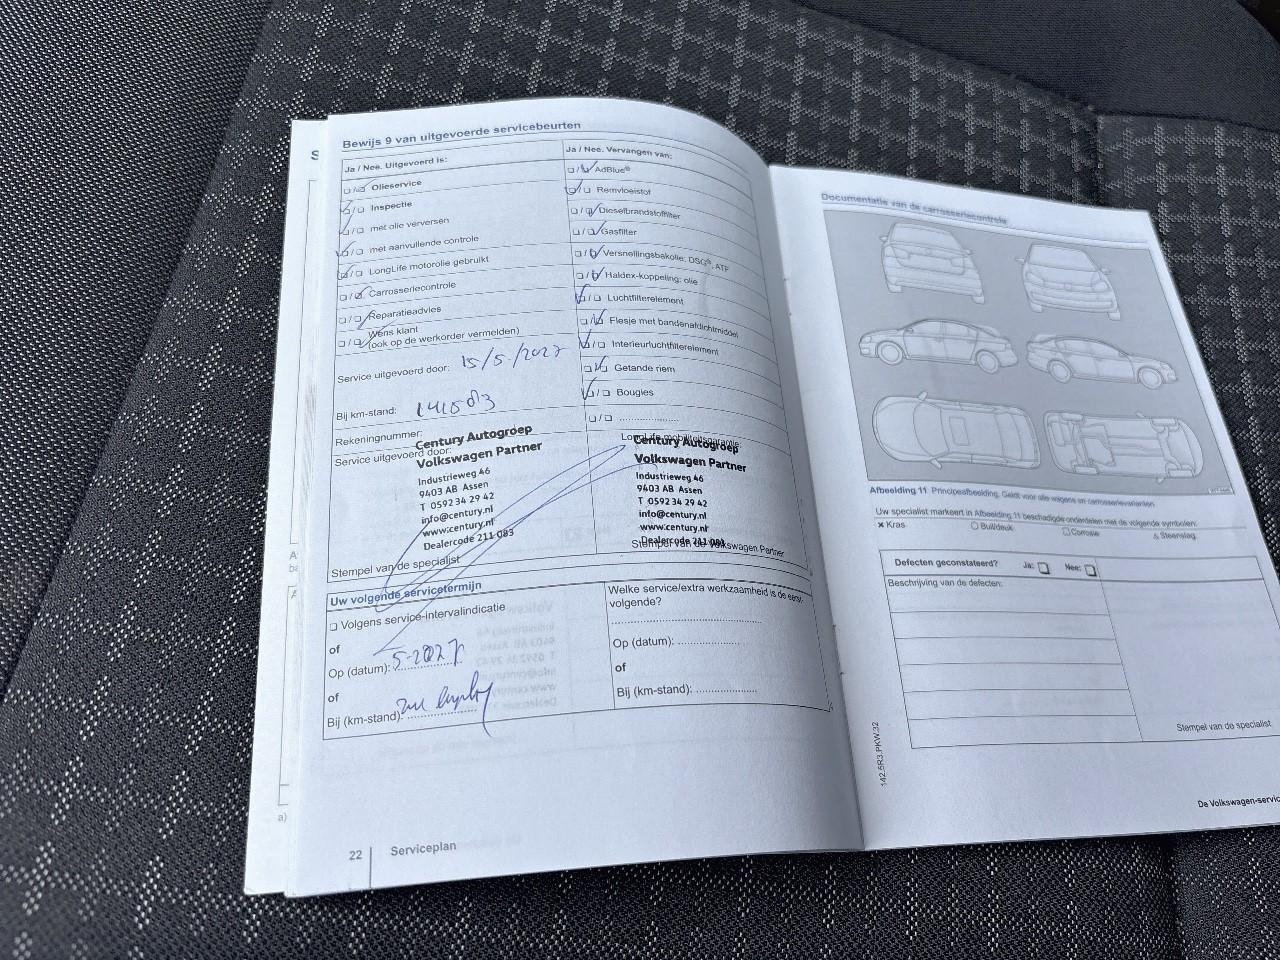 Bewijs 9 van uitgevoerde servicebeurten
Ja / Nee. Uitgevoerd is:
Olieservice
Inspectie
met olie verversen
met aanvullende controle
LongLife motorolie gebruikt
Carrosseriecontrole
Reparatieadvies
Wens klant
(ook op de werkorder vermelden)
Service uitgevoerd door:
Bij km-stand: 141583
Rekeningnummer:
Service uitgevoerd door:
Century Autogroep
Volkswagen Partner
Industrieweg 46
9403 AB Assen
T 0592 34 29 42
info@century.nl
www.century.nl
Dealercode 211 083
Stempel van de specialist
Ja / Nee. Vervangen van:
AdBlue®
Remvloeistof
Dieselbrandstoffilter
Gasfilter
Versnellingsbakolie: DSG®, ATF
Haldex-koppeling: olie
Luchtfilterelement
Flesje met bandenafdichtmiddel
Interieurluchtfilterelement
Getande riem
Bougies
LongLife mobiliteitsgarantie
Century Autogroep
Volkswagen Partner
Industrieweg 46
9403 AB Assen
T 0592 34 29 42
info@century.nl
www.century.nl
Dealercode 211 083
Stempel van de Volkswagen Partner
Uw volgende servicetermijn
Volgens service-intervalindicatie
of
Op (datum):
of
Bij (km-stand):
Welke service/extra werkzaamheid is de eerst-
volgende?
Op (datum):
of
Bij (km-stand):
22
Serviceplan
Documentatie van de carrosseriecontrole
Afbeelding 11 Principeafbeelding. Geldt voor alle wagens en carrosserievarianten
Uw specialist markeert in Afbeelding 11 beschadigde onderdelen met de volgende symbolen:
× Kras
Buil/deuk
Corrosie
Steenslag
Defecten geconstateerd?
Ja:
Nee:
Beschrijving van de defecten:
Stempel van de specialist
142.5R3.PKW.32
De Volkswagen-servic